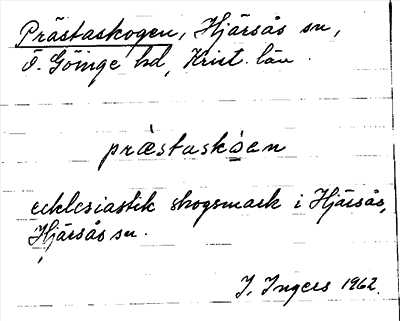 Prästaskogen, Hjärsås sn,
Ö. Göinge hd, Krist. län.
præstaskòen
ecklesiastik skogsmark i Hjärsås,
Hjärsås sn.
I. Ingers 1962.